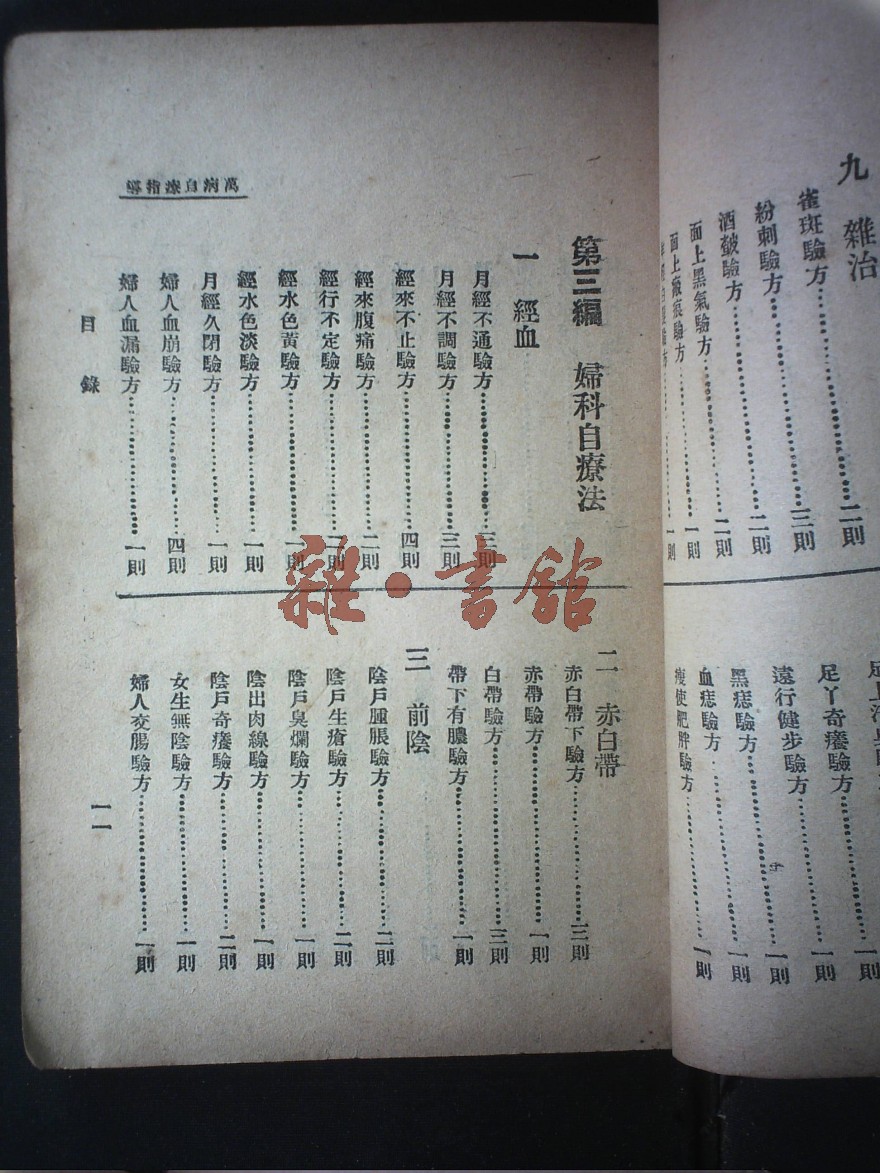 九 雜治
雀斑驗方 二則
粉刺驗方 三則
酒皶驗方 二則
面上黑氣驗方 一則
面上瘢痕驗方 一則
足丫奇癢驗方 一則
遠行健步驗方 一則
黑痣驗方 一則
血痣驗方 一則
瘦使肥胖驗方
萬病自療指導
第三編 婦科自療法
一 經血
月經不通驗方 三則
月經不調驗方 三則
經來不止驗方 四則
經來腹痛驗方 二則
經行不定驗方 二則
經水色黃驗方 一則
經水色淡驗方 一則
月經久閉驗方 一則
婦人血崩驗方 四則
婦人血漏驗方 一則
二 赤白帶
赤白帶下驗方 三則
赤帶驗方 一則
白帶驗方 三則
帶下有膿驗方 一則
三 前陰
陰戶腫脹驗方 二則
陰戶生瘡驗方 二則
陰戶臭爛驗方 一則
陰出肉線驗方 一則
陰戶奇癢驗方 二則
女生無陰驗方 一則
婦人交腸驗方 一則
目錄
一一
雜·書館